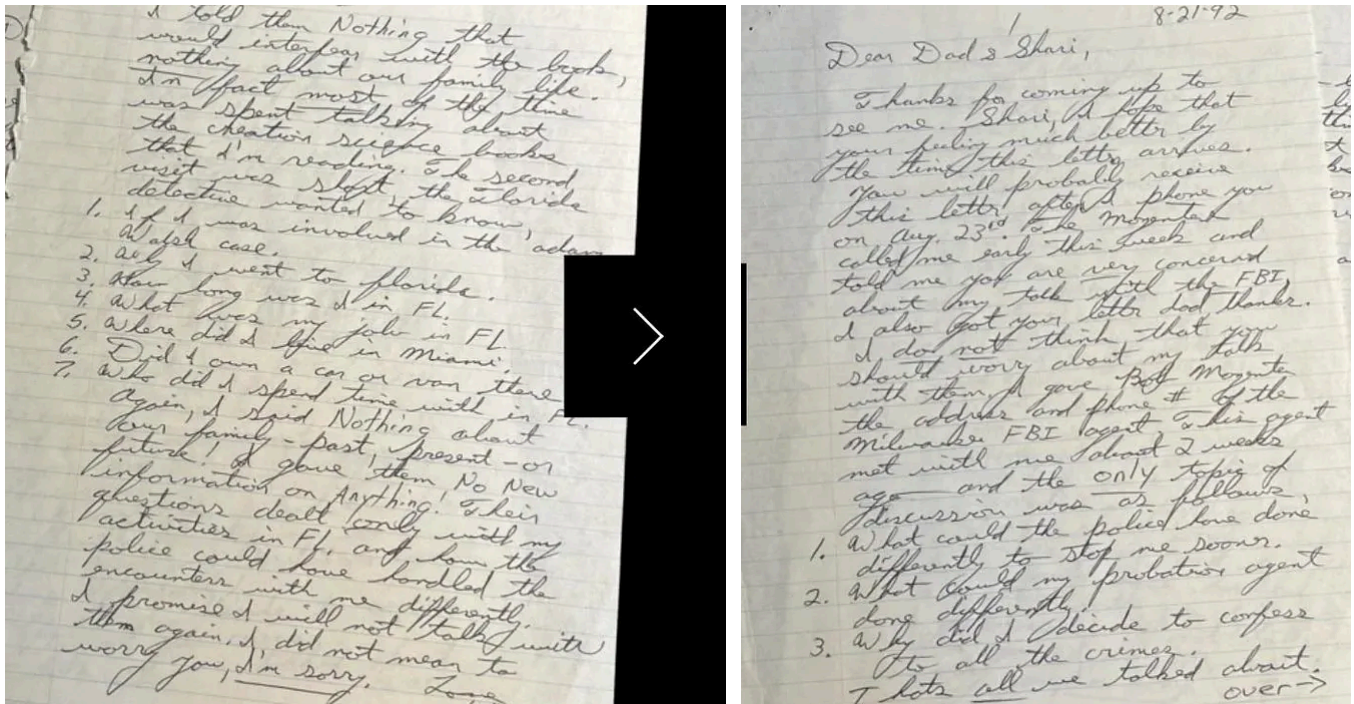 I told them Nothing that
would interfear with the book,
nothing about our family life.
In fact most of the time
was spent talking about
the creation science books
that I'm reading. The second
visit was slort the Florida
detective wanted to know,
1. If I was involved in the adam
Walsh case.
2. Why I went to florida.
3. How long was I in FL.
4. What was my job in FL
5. Where did I live in Miami.
6. Did I own a car or van there
7. Who did I spend time with in FL.
Again, I said Nothing about
our family - past, present - or
future! I gave them No New
information on Anything! Their
questions dealt only with my
activities in FL. and how the
police could have handled the
encounters with me differently.
I promise I will not talk with
them again. I did not mean to
worry you, I'm sorry. Love
1 8-21-92
Dear Dad & Shari,
Thanks for coming up to
see me. Shari, I hope that
your feeling much better by
the time this letter arrives.
You will probably receive
this letter after I phone you
on Aug. 23rd. The Mozenters
called me early this week and
told me you are very concerned
about my talk with the FBI,
I also got your letter dad, thanks.
I do not think that you
should worry about my talk
with them, I gave Bob Mozente
the address and phone # of the
Milwaukee FBI agent This agent
met with me about 2 weeks
ago and the only topic of
discussion was as follows,
1. What could the police have done
differently to stop me sooner.
2. What could my probation agent
done differently.
3. Why did I decide to confess
to all the crimes.
Thats all we talked about.
over →